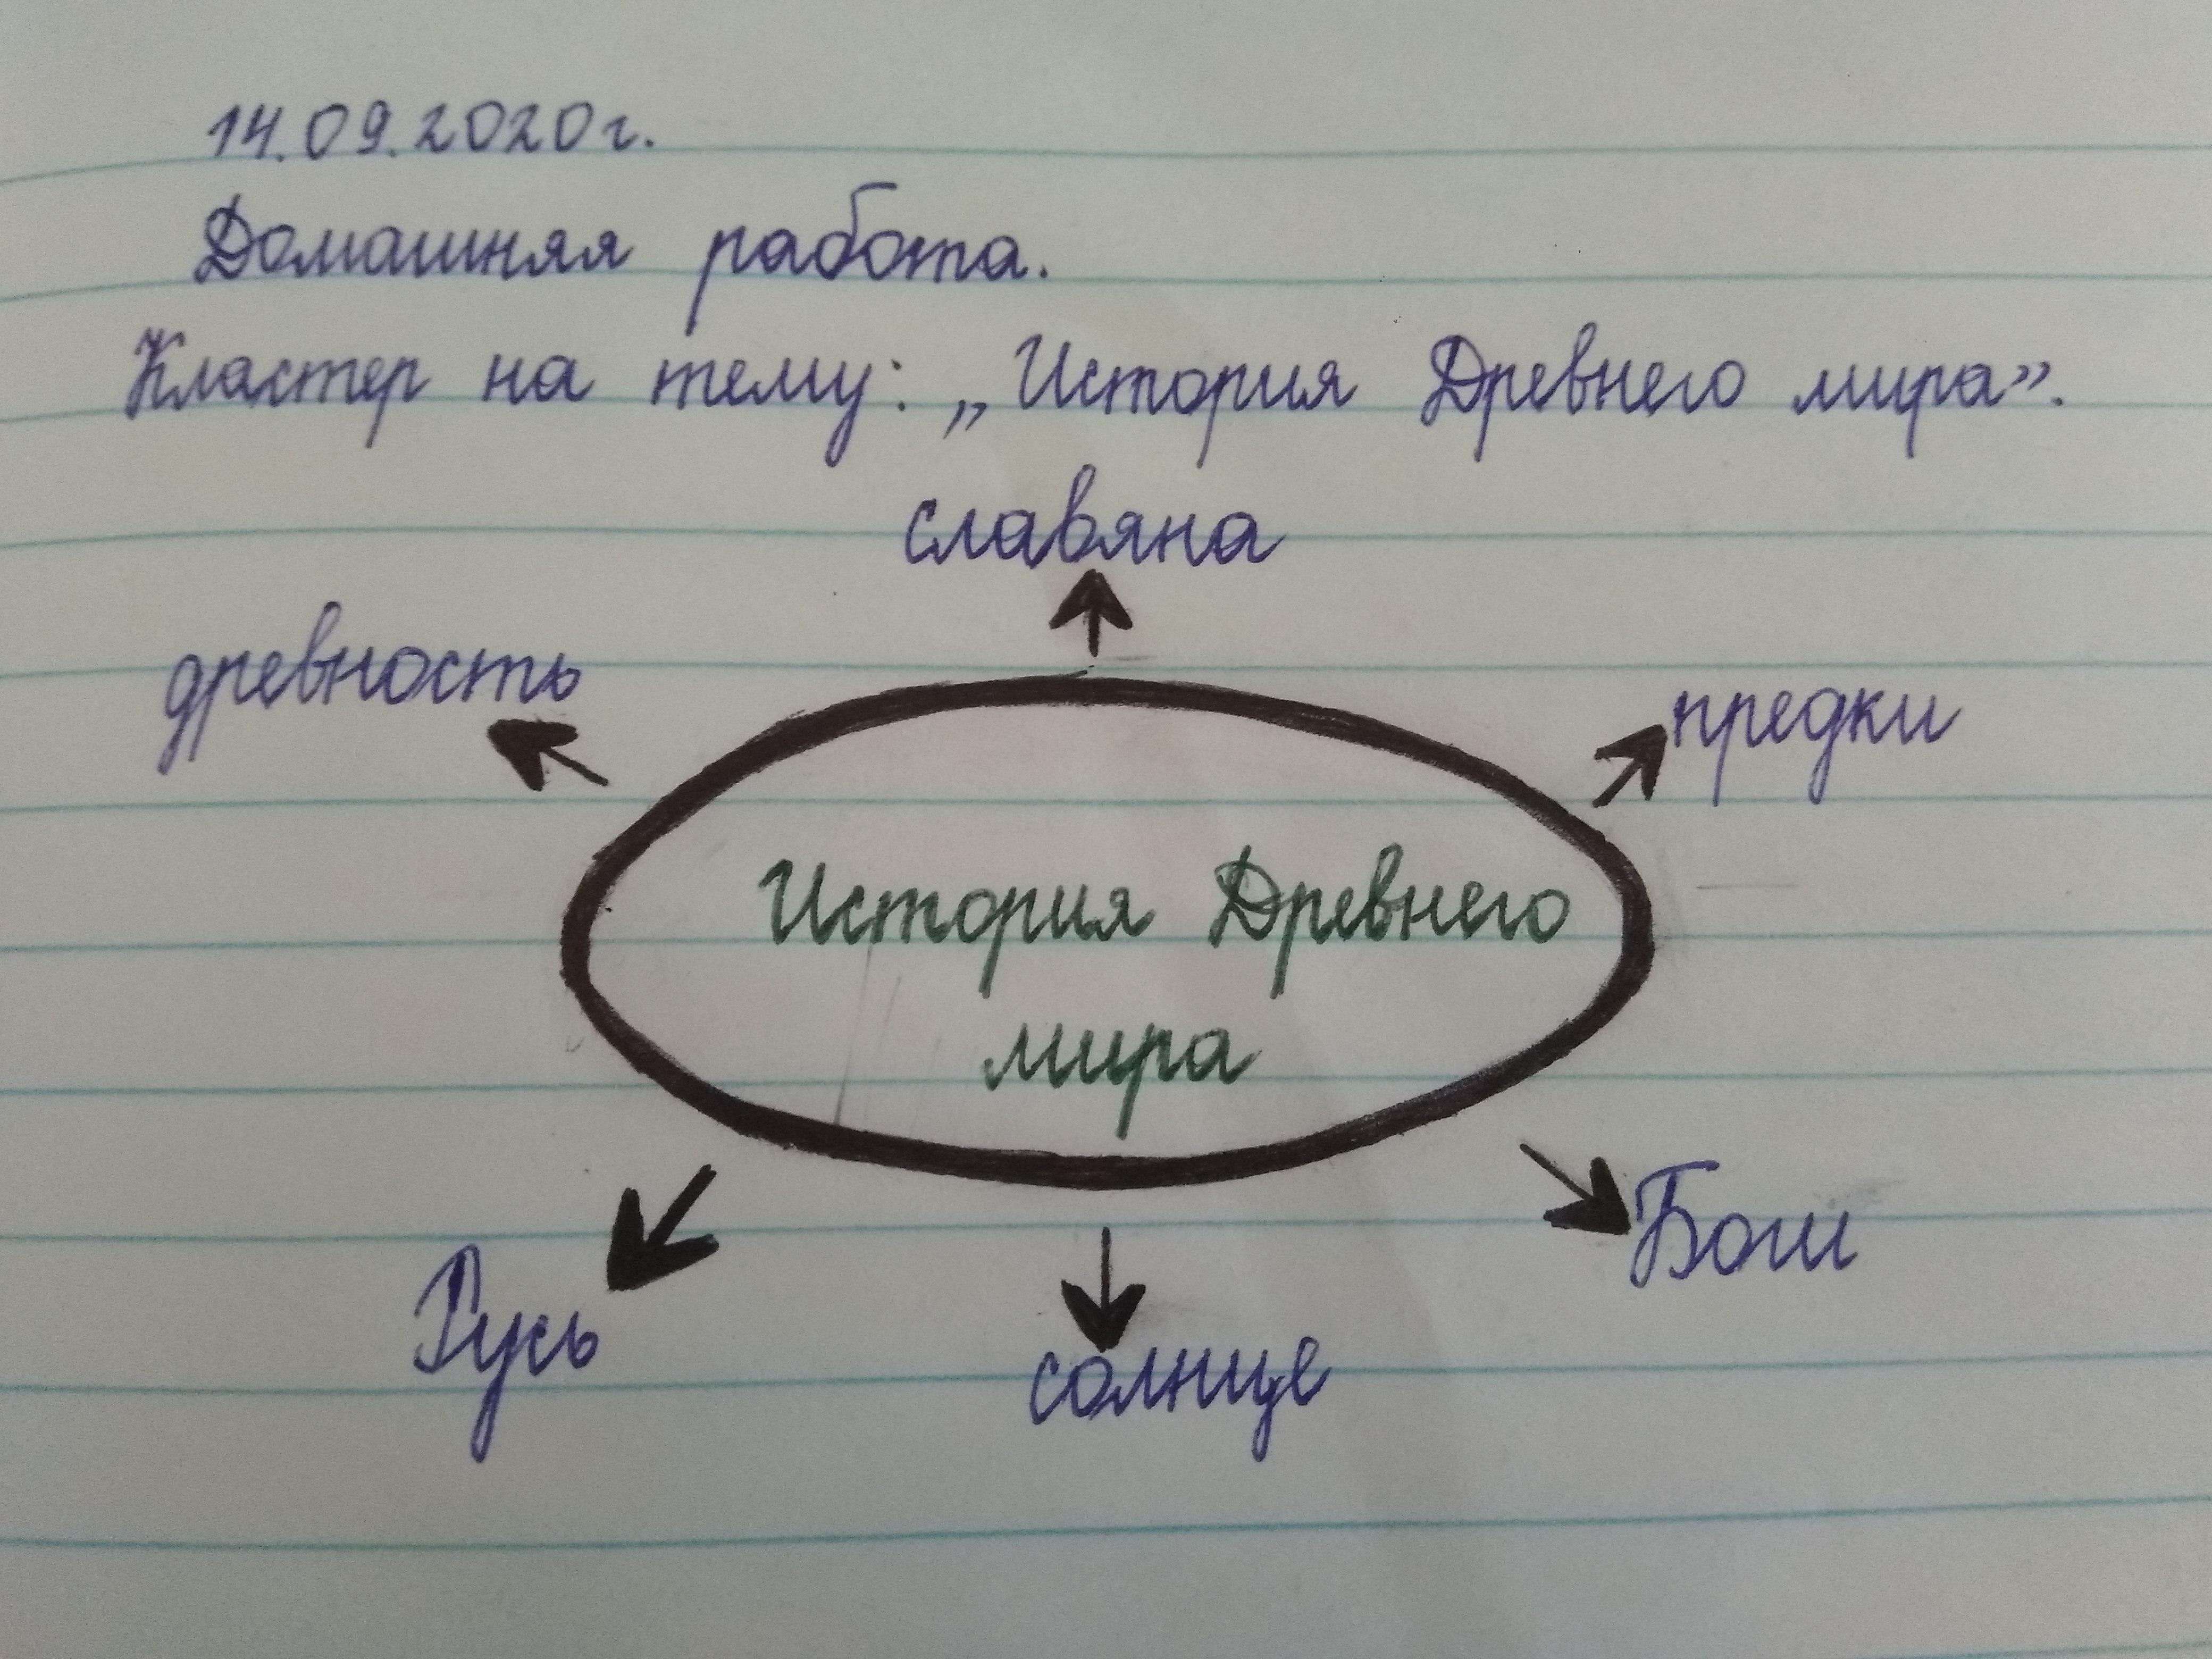 14.09.2020г.
Домашняя работа.
Кластер на тему: „История Древнего мира”.
славяна
древность
предки
История Древнего
мира
Боги
Русь
солнце